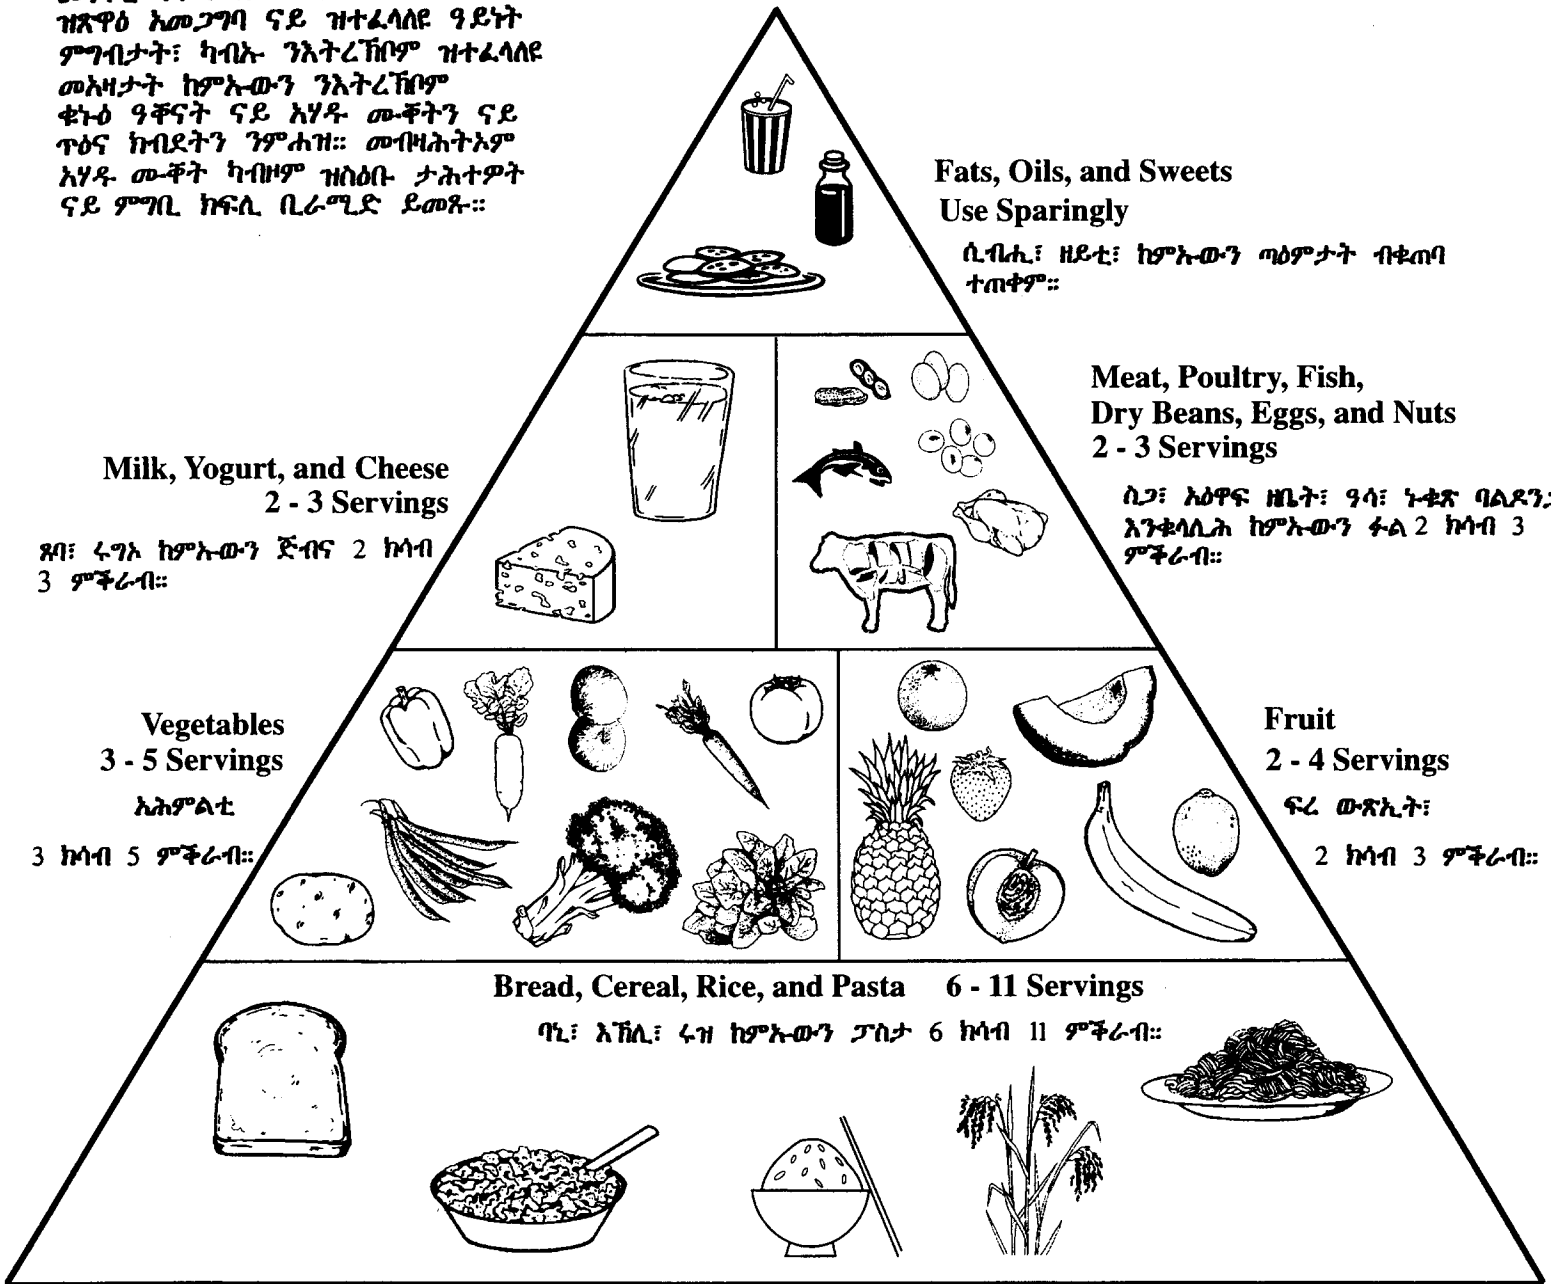 ዝጽዋዕ አመጋግባ ናይ ዝተፈላለዩ ዓይነት
ምግብታት፣ ካብኡ ንእትረኽቦም ዝተፈላለዩ
መአዛታት ከምኡውን ንእትረኽቦም
ቁኑዕ ዓቐናት ናይ አሃዱ ሙቐትን ናይ
ጥዕና ክብደትን ንምሐዝ። መብዛሕትኦም
አሃዱ ሙቐት ካብዞም ዝስዕቡ ታሕተዎት
ናይ ምግቢ ክፍሊ ቢራሚድ ይመጹ።
Fats, Oils, and Sweets
Use Sparingly
ሲብሒ፣ ዘይቲ፣ ከምኡውን ጣዕምታት ብቁጠባ
ተጠቀም።
Meat, Poultry, Fish,
Dry Beans, Eggs, and Nuts
2 - 3 Servings
ስጋ፣ አዕዋፍ ዘቤት፣ ዓሳ፣ ኑቁጽ ባልዶንጓ
እንቁላሊሕ ከምኡውን ፉል 2 ክሳብ 3
ምቕራብ።
Milk, Yogurt, and Cheese
2 - 3 Servings
ጸባ፣ ሩግኦ ከምኡውን ጅብና 2 ክሳብ
3 ምቕራብ።
Vegetables
3 - 5 Servings
አሕምልቲ
3 ክሳብ 5 ምቕራብ።
Fruit
2 - 4 Servings
ፍረ ውጽኢት፣
2 ክሳብ 3 ምቕራብ።
Bread, Cereal, Rice, and Pasta 6 - 11 Servings
ባኒ፣ እኽሊ፣ ሩዝ ከምኡውን ፓስታ 6 ክሳብ 11 ምቕራብ።